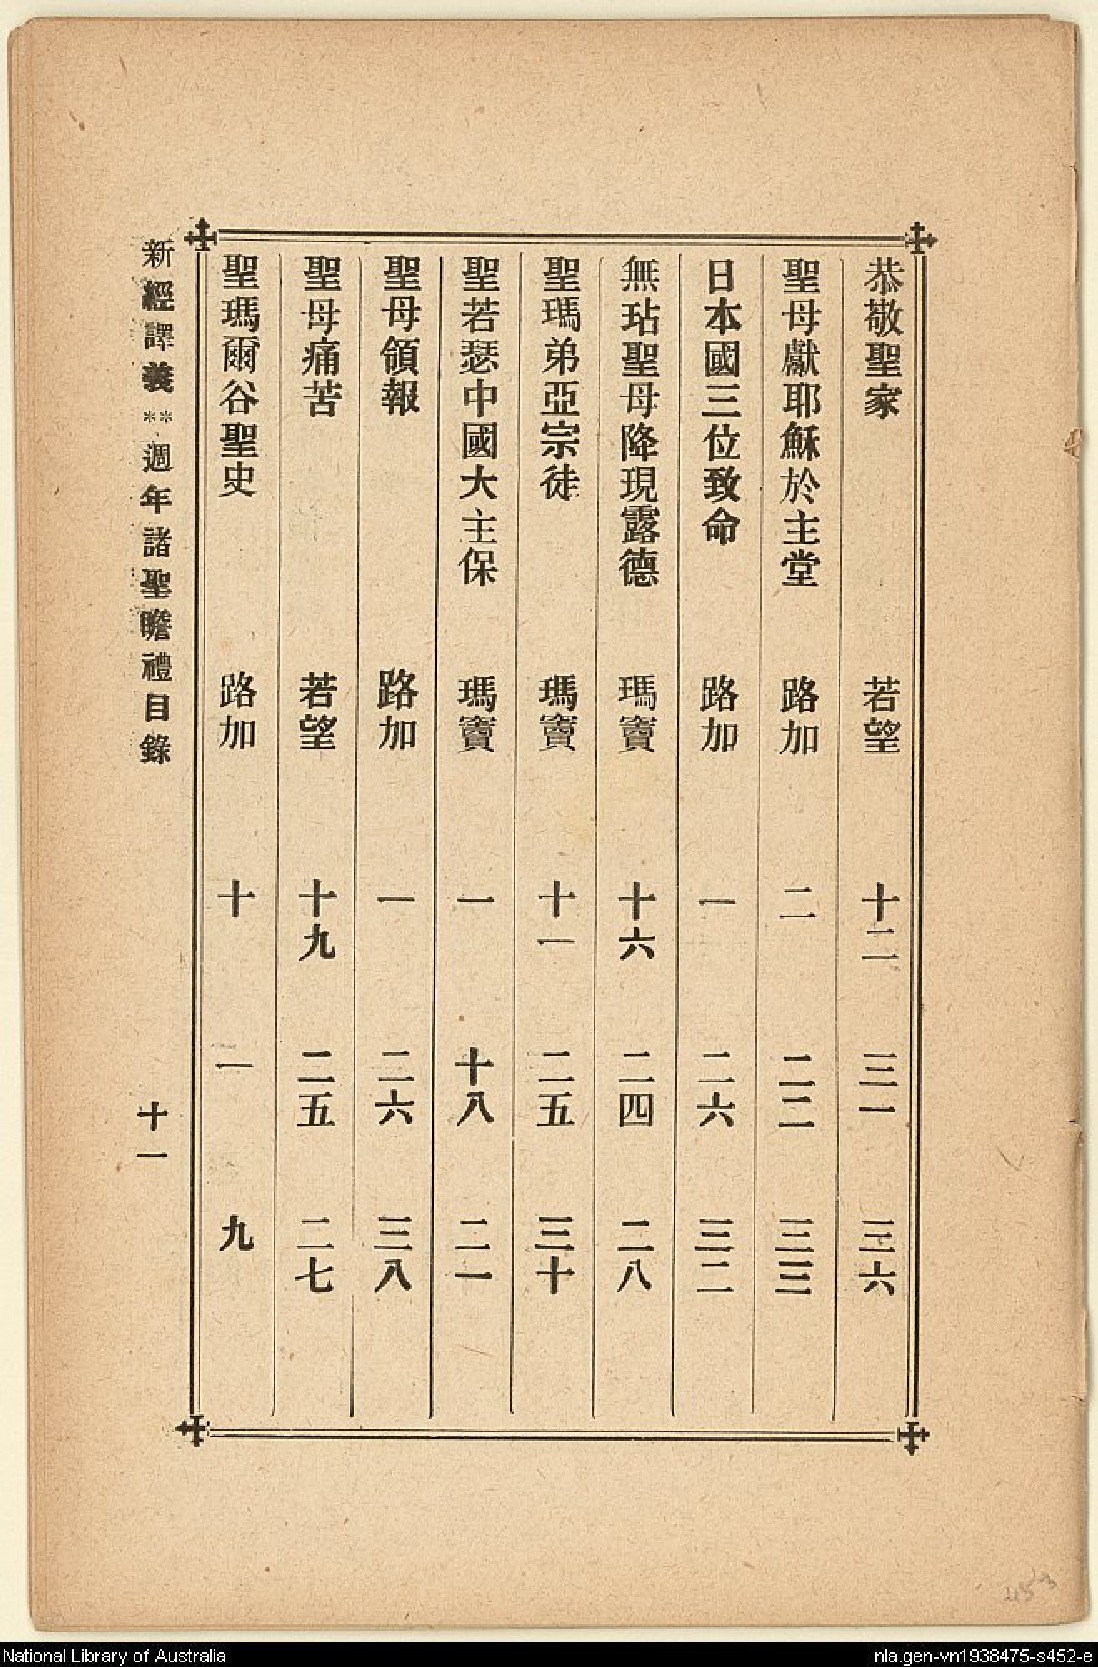 恭敬聖家 若望 十二 三一 三六
聖母獻耶穌於主堂 路加 二 二二 三三
日本國三位致命 路加 一 二六 三二
無玷聖母降現露德 瑪竇 十六 二四 二八
聖瑪弟亞宗徒 瑪竇 十一 二五 三十
聖若瑟中國大主保 瑪竇 一 十八 二一
聖母領報 路加 一 二六 三八
聖母痛苦 若望 十九 二五 二七
聖瑪爾谷聖史 路加 十 一 九
新經譯義**週年諸聖瞻禮目錄 十一
453
National Library of Australia
nla.gen-vn1938475-s452-e